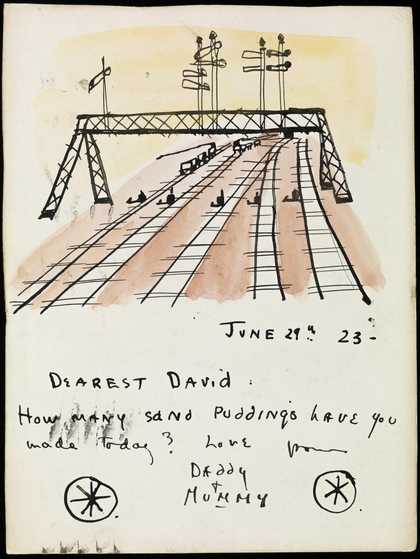 JUNE 29th 23-
DEAREST DAVID:
HOW MANY SAND PUDDINGS HAVE YOU
made today? LOVE from
DADDY
+
MUMMY